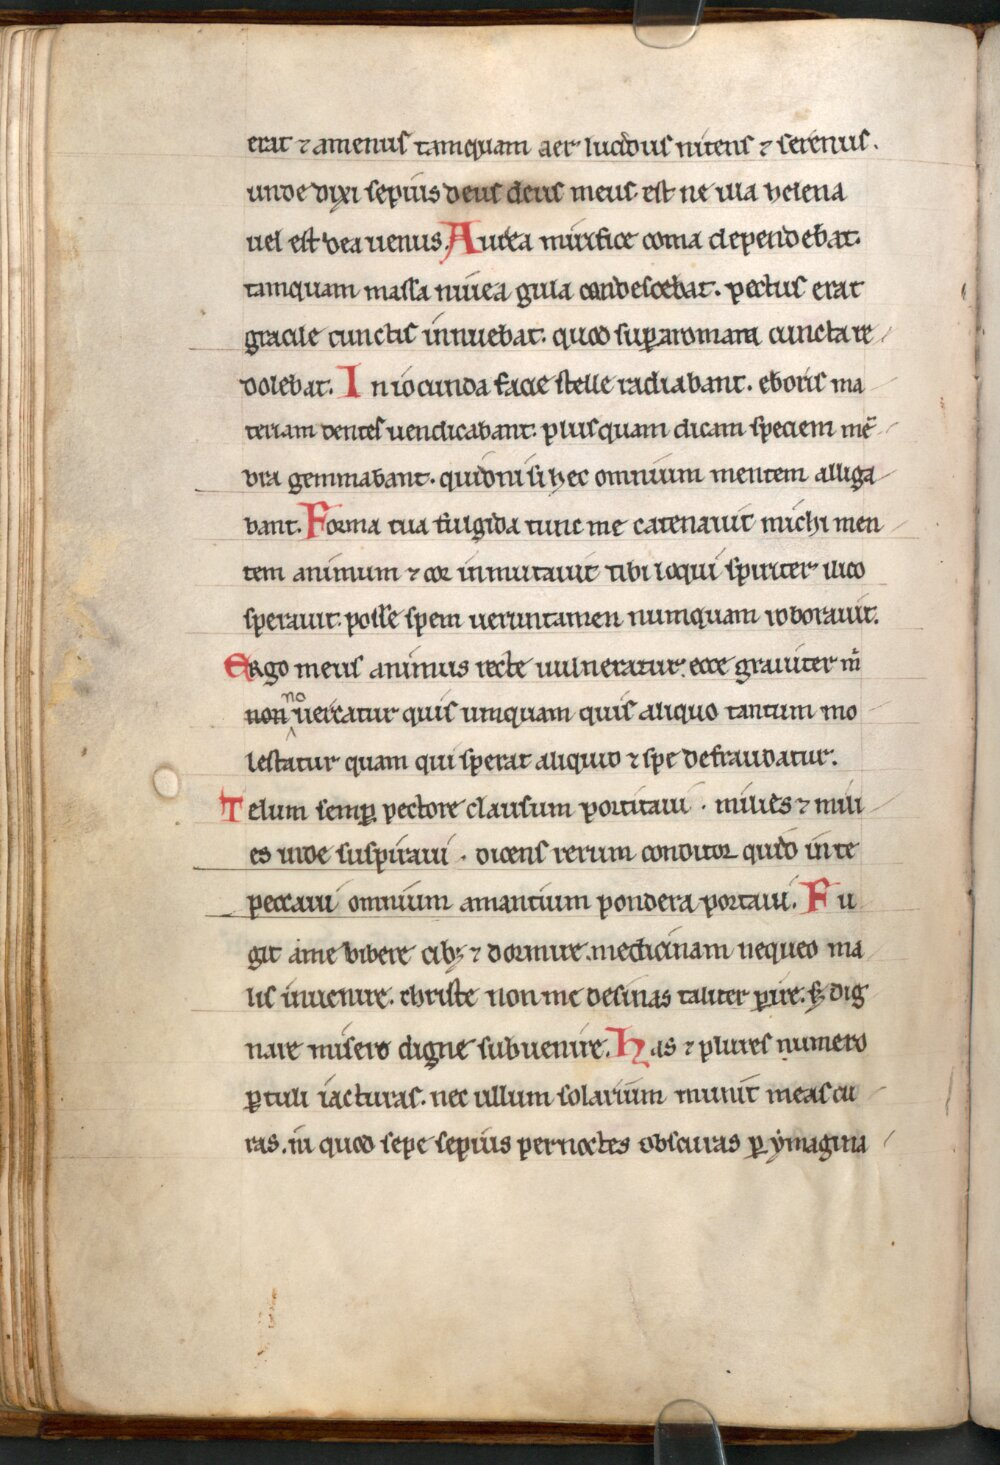 erat ⁊ amenus tamquam aer lucidus nitens ⁊ serenus.
unde dixi sepius deus deus meus. est ne illa helena
uel est dea uenus. Aurea mirifice coma dependebat.
tamquam massa niuea gula condescebat. pectus erat
gracile cunctis innuebat. quod suꝑ aromata cuncta re
dolebat. In iocunda facie stelle radiabant. eboris ma
teriam dentes uendicabant. plus quam dicam speciem mē
bra gemmabant. quidni si hec omnium mentem alliga
bant. Forma tua fulgida tunc me catenauit michi men
tem animum ⁊ cor inmutauit tibi loqui spiriter ilico
sperauit. posse spem ueruntamen numquam roborauit.
Ergo meus animus recte uulneratur. ecce grauiter m̄
non no uercatur quis umquam quis aliquo tantum mo
lestatur quam qui sperat aliquid ⁊ spe defraudatur.
Telum semꝑ pectore clausum portitaui . milies ⁊ mili
es inde suspiraui . dicens rerum conditor quid in te
peccaui omnium amantium pondera portaui. Fu
git a me bibere cibꝫ ⁊ dormire. medicinam nequeo ma
lis inuenire. christe non me desinas taliter ꝑire. sꝫ dig
nare misero digne subuenire. Has ⁊ plures numero
ꝑtuli iacturas. nec ullum solatium munit meas cu
ras. ni quod sepe sepius per noctes obscuras ꝑ ẏmagina